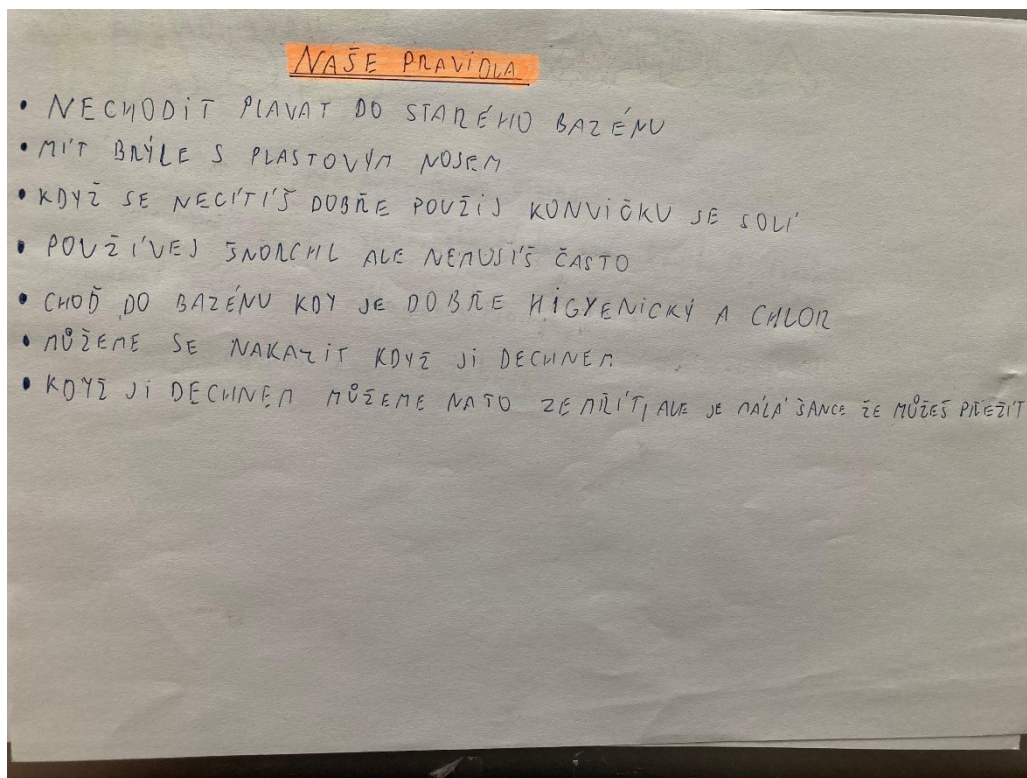 NAŠE PRAVIDLA
• NECHODIT PLAVAT DO STARÉHO BAZÉNU
• MÍT BRÝLE S PLASTOVÝM NOSEM
• KDYŽ SE NECÍTÍŠ DOBŘE POUŽIJ KONVIČKU SE SOLÍ
• POUŽÍVEJ ŠNORCHL ALE NEMUSÍŠ ČASTO
• CHOĎ DO BAZÉNU KDY JE DOBŘE HIGYENICKÝ A CHLOR
• MŮŽEME SE NAKAZIT KDYŽ JI DECHNEM
• KDYŽ JI DECHNEM MŮŽEME NATO ZEMŘÍT, ALE JE MÁLÁ ŠANCE ŽE MŮŽEŠ PŘEŽÍT